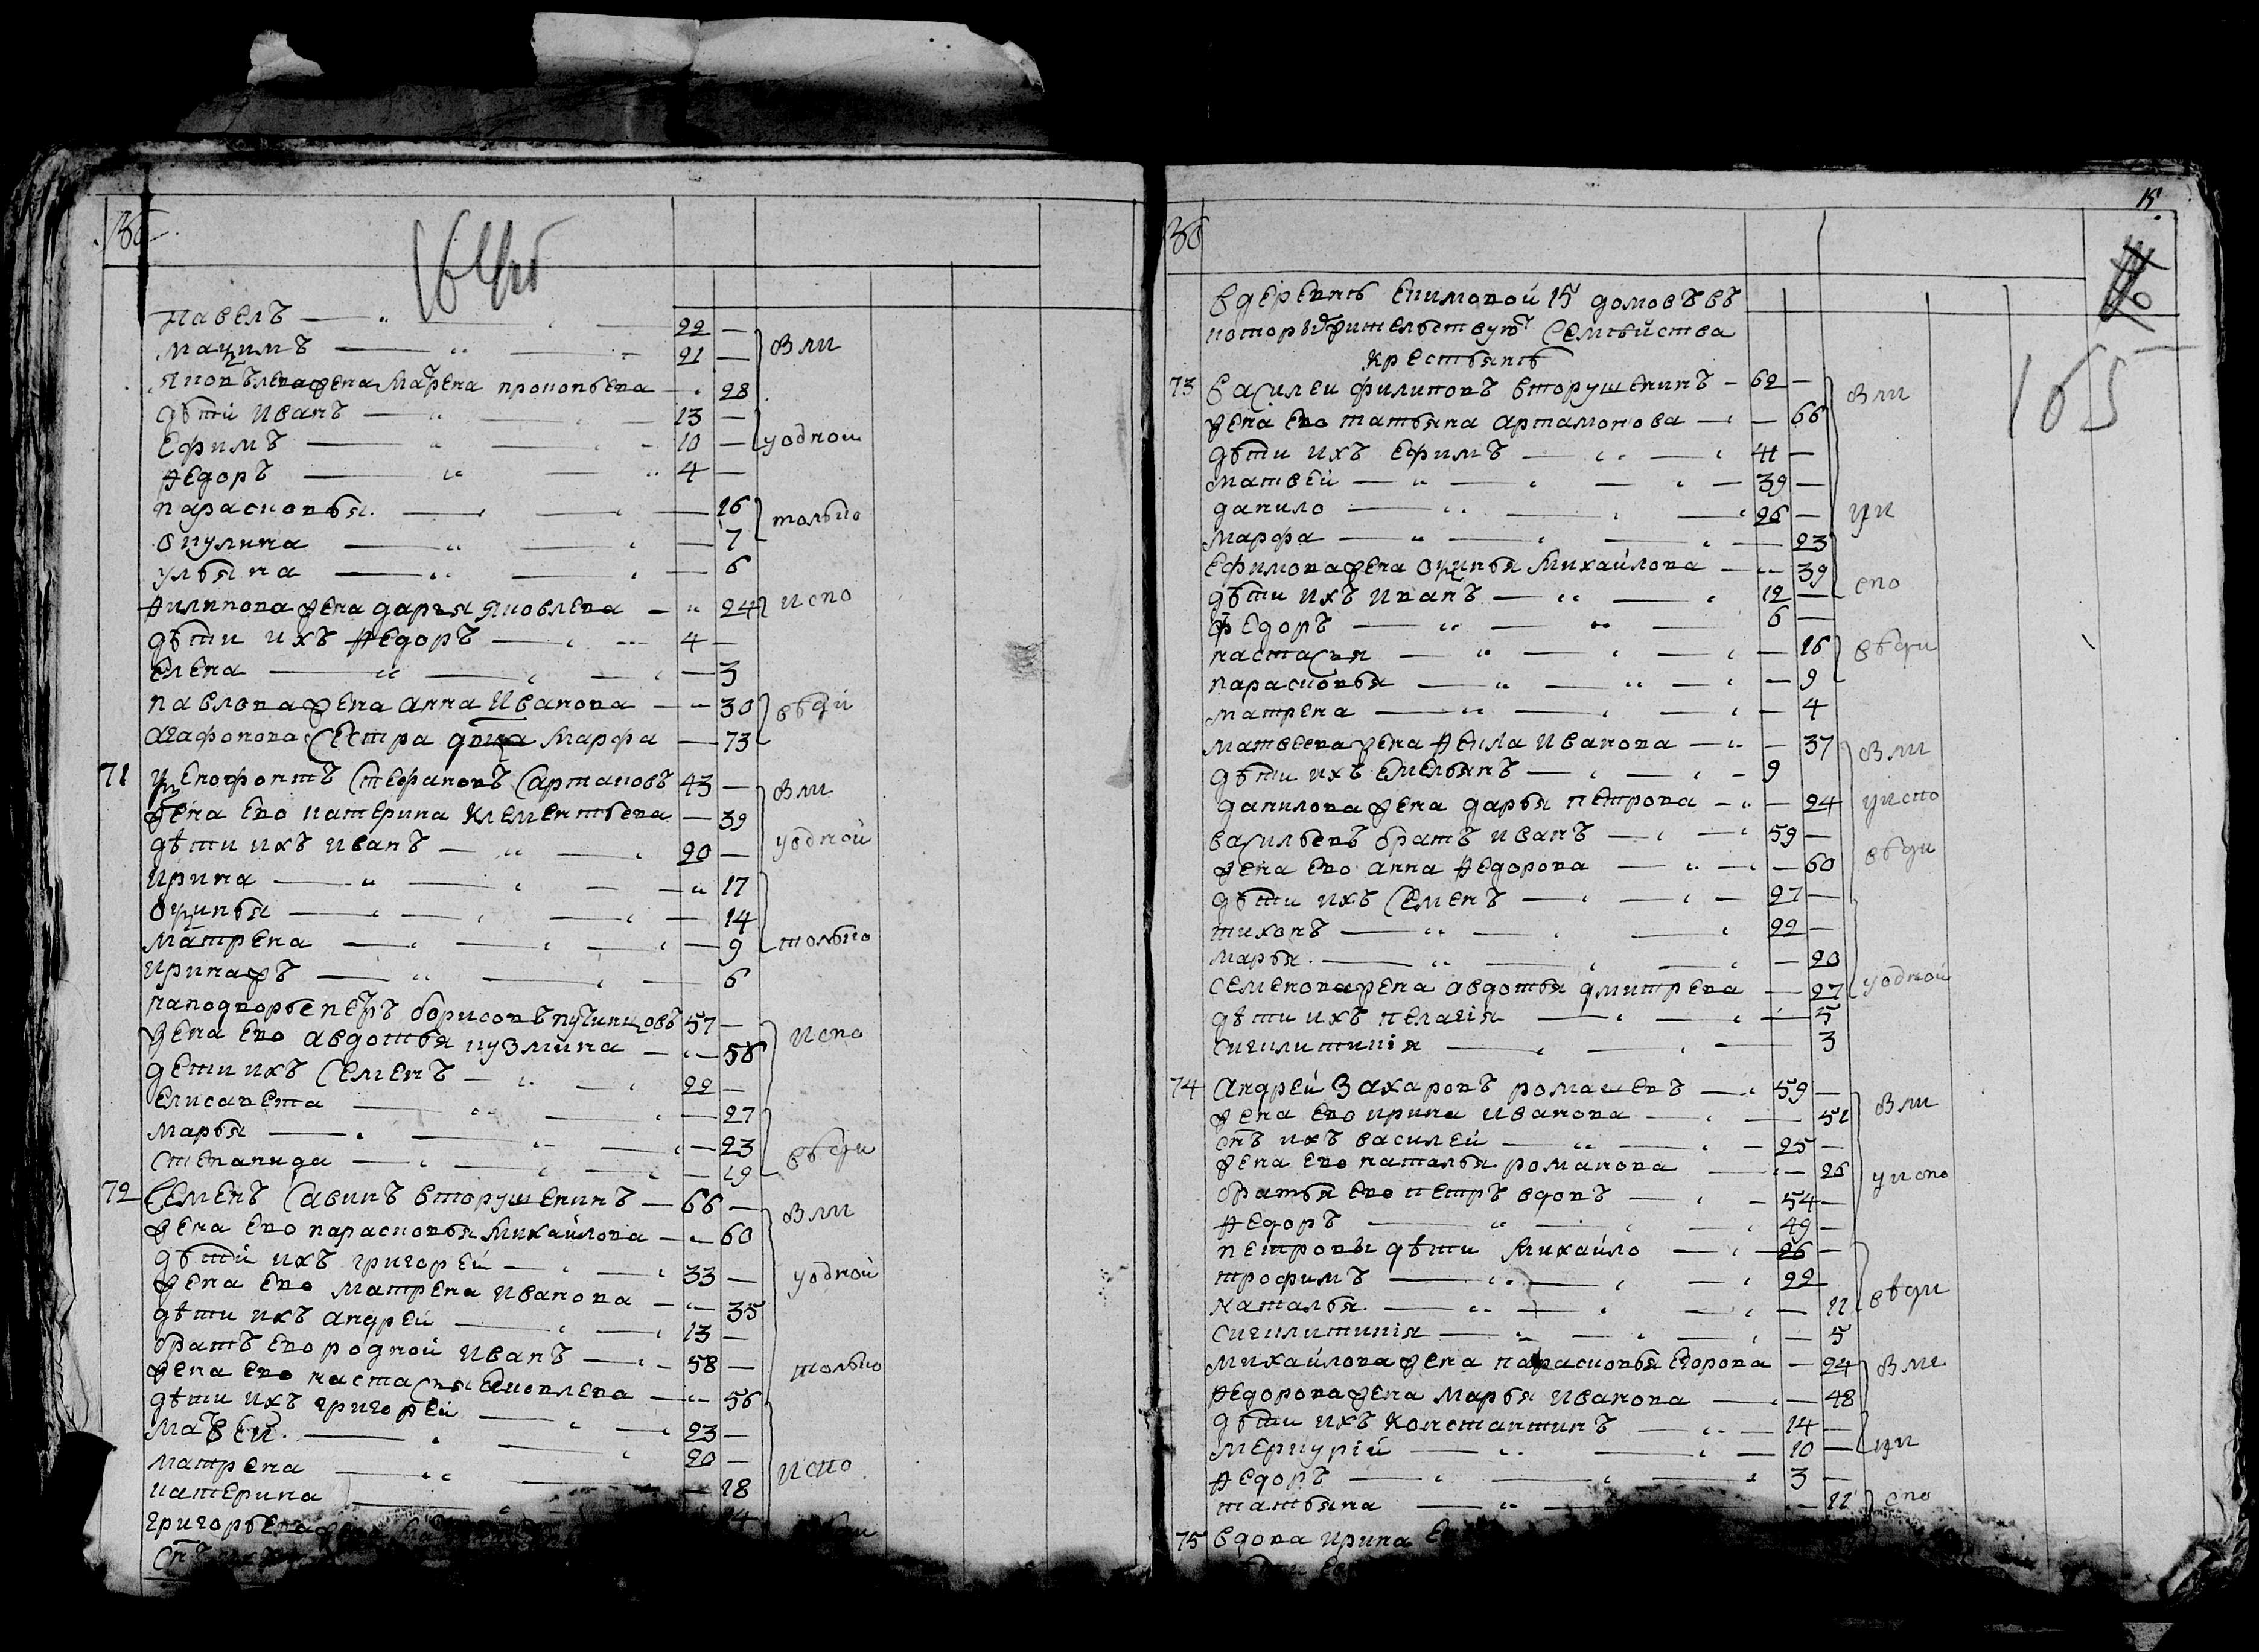 36
164 об
Павелъ 22 —
Маѯимъ 21 — взли
Яковълева жена Матрена прокопьева — 28
дѣти Иванъ 13 —
Ефимъ 10 — у одной
Ѳедоръ 4 —
Парасковья — 16
Акулина — 7 только
Ульяна — 6
Филипова жена дарья яковлева — 24 испо
дѣти ихъ Ѳедоръ 4 —
Елена — 3
Павлова жена анна Иванова — 30
агафонова сестра двца Марфа — 73 вѣди
71 Ѯенофонтъ Стефановъ Сартаковъ 43 — взли
жена ево катерина Клементьева — 39
дѣти ихъ Иванъ 20 — у одной
Ирина — 17
Оѯинья — 14
Матрена — 9 только
Иринафъ — 6
на подворье Петръ борисовъ 57 —
жена ево авдотья кузмина — 58 испо
дети ихъ Семенъ 22 —
Елисавета — 27
Марья — 23
Степанида — 19 вѣди
72 Семенъ Савинъ вторушенинъ 66 — взли
жена ево парасковья Михайлова — 60
дѣти ихъ григорей 33 — у одной
жена ево Матрена Иванова — 35
дѣти ихъ андрей 13 —
братъ ево родной Иванъ 58 — только
жена ево настасья яковлева — 56
дѣти ихъ григорей 23 —
Матвей 20 —
Матрена — 18 испо
катерина — 14
григорьева жена
Снъ ихъ
36
15.
165
в деревнѣ Екимовой 15 домовъ въ
которыхъ жительствуютъ семейства
Крестьянъ
73 Василеи филиповъ вторушенинъ 62 — взли
жена ево татьяна артамонова — 66
дѣти ихъ Ефимъ 41 —
Матвей 39 —
данило 26 — ѵи
Марфа — 23
Ефимова жена Оѯинья Михайлова — 39
дѣти ихъ Иванъ 12 — спо
Федоръ 6 —
настасья — 16 вѣди
парасковья — 9
Матрена — 4
Матвеева жена Ѳекла Иванова — 37 взли
дѣти ихъ Емельянъ 9
данилова жена дарья петрова — 24 у испо
васильевъ братъ Иванъ 59 —
жена ево анна Ѳедорова — 60 вѣди
дѣти ихъ Семенъ 27 —
тихонъ 22 —
Марья — 20
Семенова жена авдотья дмитрева — 27 у одной
дѣти ихъ пелагія — 5
Сигклитикія — 3
74 Андрей Захаровъ ромашевъ 59 —
жена ево ирина Иванова — 51 взли
снъ ихъ василей 25 —
жена ево наталья романова — 26
братья ево петръ вдовъ 54 — у испо
Ѳедоръ 49 —
петровы дѣти Михайло 26 —
трофимъ 22
наталья — 11 вѣди
Сигклитикія — 5
Михайлова жена парасковья Егорова — 24 взли
Ѳедорова жена Марья Иванова — 48
дѣти ихъ Константинъ 14 —
Меркурій 10 —
Ѳедоръ 3 —
татьяна — 11 спо
75 вдова ирина